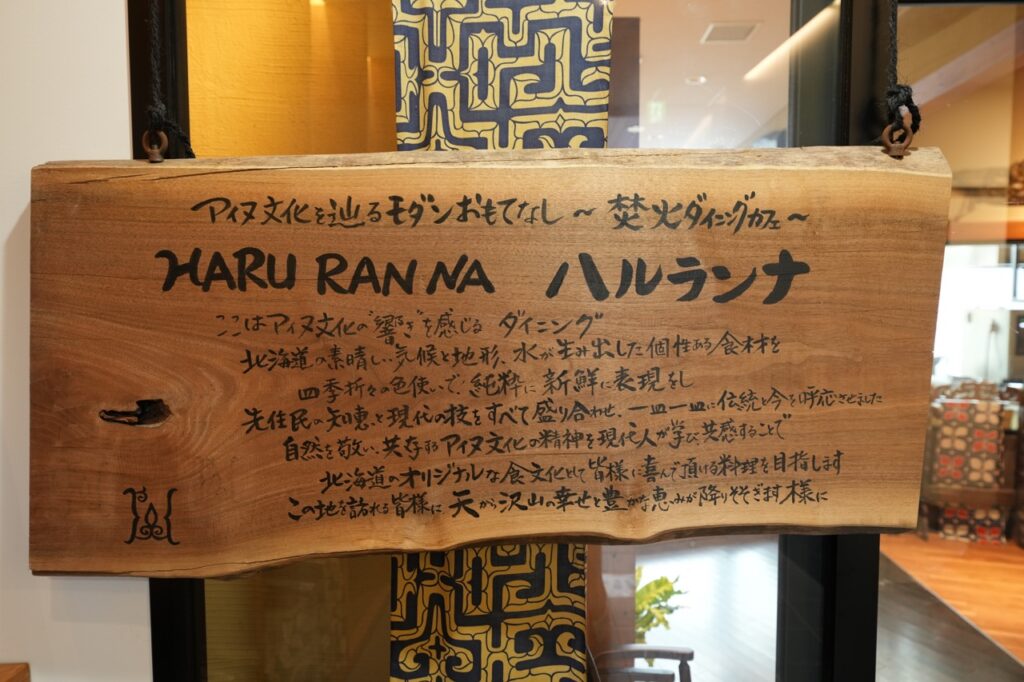 アイヌ文化を辿るモダンおもてなし ～ 焚火ダイニングカフェ～
HARU RAN NA ハルランナ
ここはアイヌ文化の"響き"を感じる ダイニング
北海道の素晴しい気候と地形、水が生み出した個性ある食材を
四季折々の色使いで、純粋に新鮮に表現をし
先住民の知恵と現代の技をすべて盛り合わせ、一皿一皿に伝統と今を呼応させました
自然を敬い、共存するアイヌ文化の精神を現代人が学び共感することで
北海道のオリジナルな食文化として皆様に喜んで頂ける料理を目指します
この地を訪れる皆様に 天から沢山の幸せと豊かな恵みが降りそそぎます様に